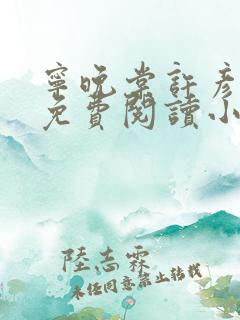 寧晚棠許彥
免費閱讀小
陸志霖
未任同意禁止转载